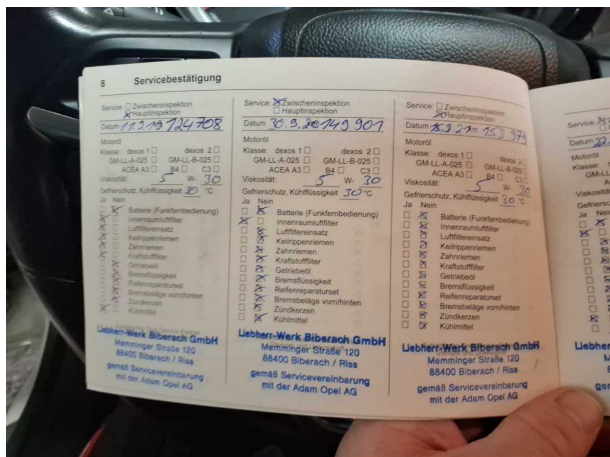 8 Servicebestätigung
Service: Zwischeninspektion
Hauptinspektion
Datum 124708
Motoröl
Klasse: dexos 1 dexos 2
GM-LL-A-025 GM-LL-B-025
ACEA A3 B4 C3
Viskosität: 5 W- 30
Gefrierschutz, Kühlflüssigkeit 30 °C
Ja Nein
Batterie (Funkfernbedienung)
Innenraumluftfilter
Luftfiltereinsatz
Keilrippenriemen
Zahnriemen
Kraftstofffilter
Getriebeöl
Bremsflüssigkeit
Reifenreparaturset
Bremsbeläge vorn/hinten
Zündkerzen
Kühlmittel
Liebherr-Werk Biberach GmbH
Memminger Straße 120
88400 Biberach / Riss
gemäß Servicevereinbarung
mit der Adam Opel AG
Service: Zwischeninspektion
Hauptinspektion
Datum 30.9.20 149 901
Motoröl
Klasse: dexos 1 dexos 2
GM-LL-A-025 GM-LL-B-025
ACEA A3 B4 C3
Viskosität: 5 W- 30
Gefrierschutz, Kühlflüssigkeit 30 °C
Ja Nein
Batterie (Funkfernbedienung)
Innenraumluftfilter
Luftfiltereinsatz
Keilrippenriemen
Zahnriemen
Kraftstofffilter
Getriebeöl
Bremsflüssigkeit
Reifenreparaturset
Bremsbeläge vorn/hinten
Zündkerzen
Kühlmittel
Liebherr-Werk Biberach GmbH
Memminger Straße 120
88400 Biberach / Riss
gemäß Servicevereinbarung
mit der Adam Opel AG
Service: Zwischeninspektion
Hauptinspektion
Datum
Motoröl
Klasse: dexos 1 dexos 2
GM-LL-A-025 GM-LL-B-025
ACEA A3 B4 C3
Viskosität: 5 W- 30
Gefrierschutz, Kühlflüssigkeit 30 °C
Ja Nein
Batterie (Funkfernbedienung)
Innenraumluftfilter
Luftfiltereinsatz
Keilrippenriemen
Zahnriemen
Kraftstofffilter
Getriebeöl
Bremsflüssigkeit
Reifenreparaturset
Bremsbeläge vorn/hinten
Zündkerzen
Kühlmittel
Liebherr-Werk Biberach GmbH
Memminger Straße 120
88400 Biberach / Riss
gemäß Servicevereinbarung
mit der Adam Opel AG
Datum
Motoröl
Klasse: